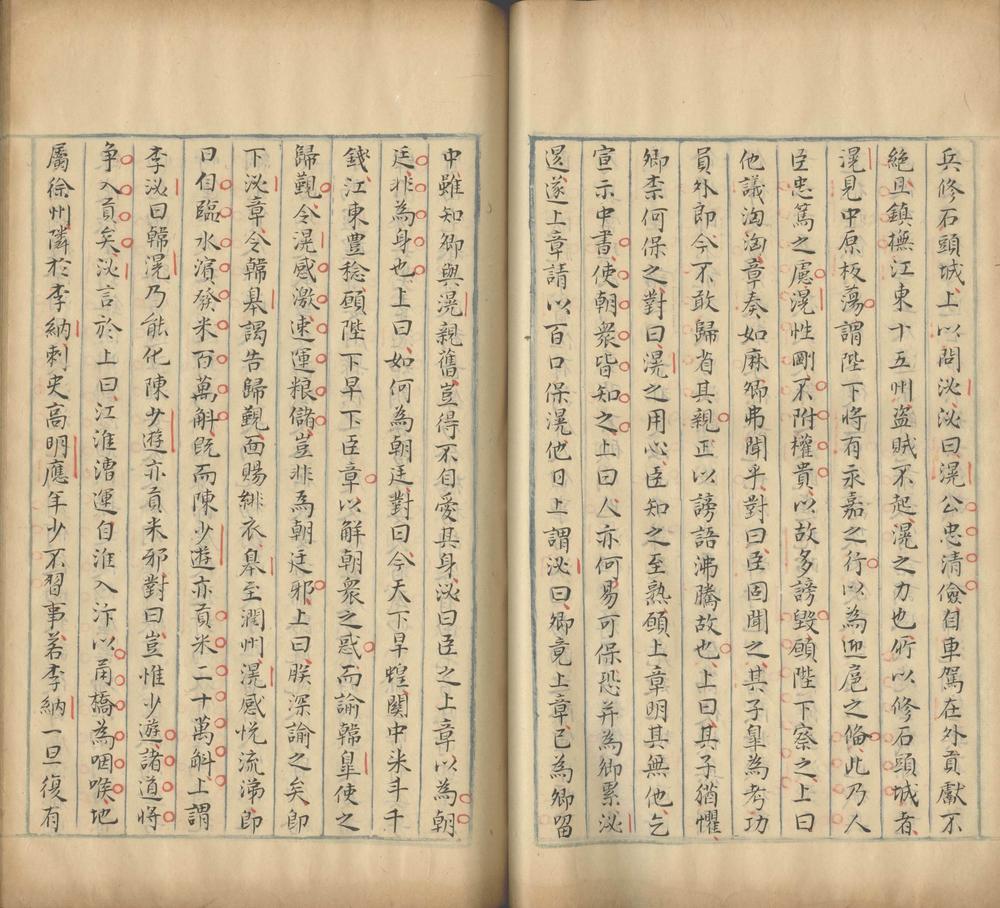 兵修石頭城上以問泌泌曰滉公忠清儉自車駕在外貢獻不
絕且鎮撫江東十五州盜賊不起滉之力也所以修石頭城者
滉見中原板蕩謂陛下將有永嘉之行以為迎扈之俻此乃人
臣忠篤之慮滉性剛不附權貴以故多謗毀願陛下察之上曰
他議洶洶章奏如麻卿弗聞乎對曰臣固聞之其子臯為考功
員外郎今不敢歸省其親正以謗語沸騰故也上曰其子猶懼
卿柰何保之對曰滉之用心臣知之至熟願上章明其無他乞
宣示中書使朝衆皆知之上曰人亦何易可保恐并為卿累泌
退遂上章請以百口保滉他日上謂泌曰卿竟上章已為卿留
中雖知卿與滉親舊豈得不自愛其身泌曰臣之上章以為朝
廷非為身也上曰如何為朝廷對曰今天下旱蝗關中米斗千
錢江東豊稔願陛下早下臣章以解朝衆之惑而諭韓臯使之
歸覲令滉感激速運粮儲豈非為朝廷邪上曰朕深諭之矣即
下泌章令韓臯謁告歸覲面賜緋衣臯至潤州滉感悦流涕即
日自臨水濱發米百萬斛既而陳少遊亦貢米二十萬斛上謂
李泌曰韓滉乃能化陳少遊亦貢米邪對曰豈惟少遊諸道將
争入貢矣泌言於上曰江淮漕運自淮入汴以甬橋為咽喉地
屬徐州隣於李納刺史高明應年少不習事若李納一旦復有